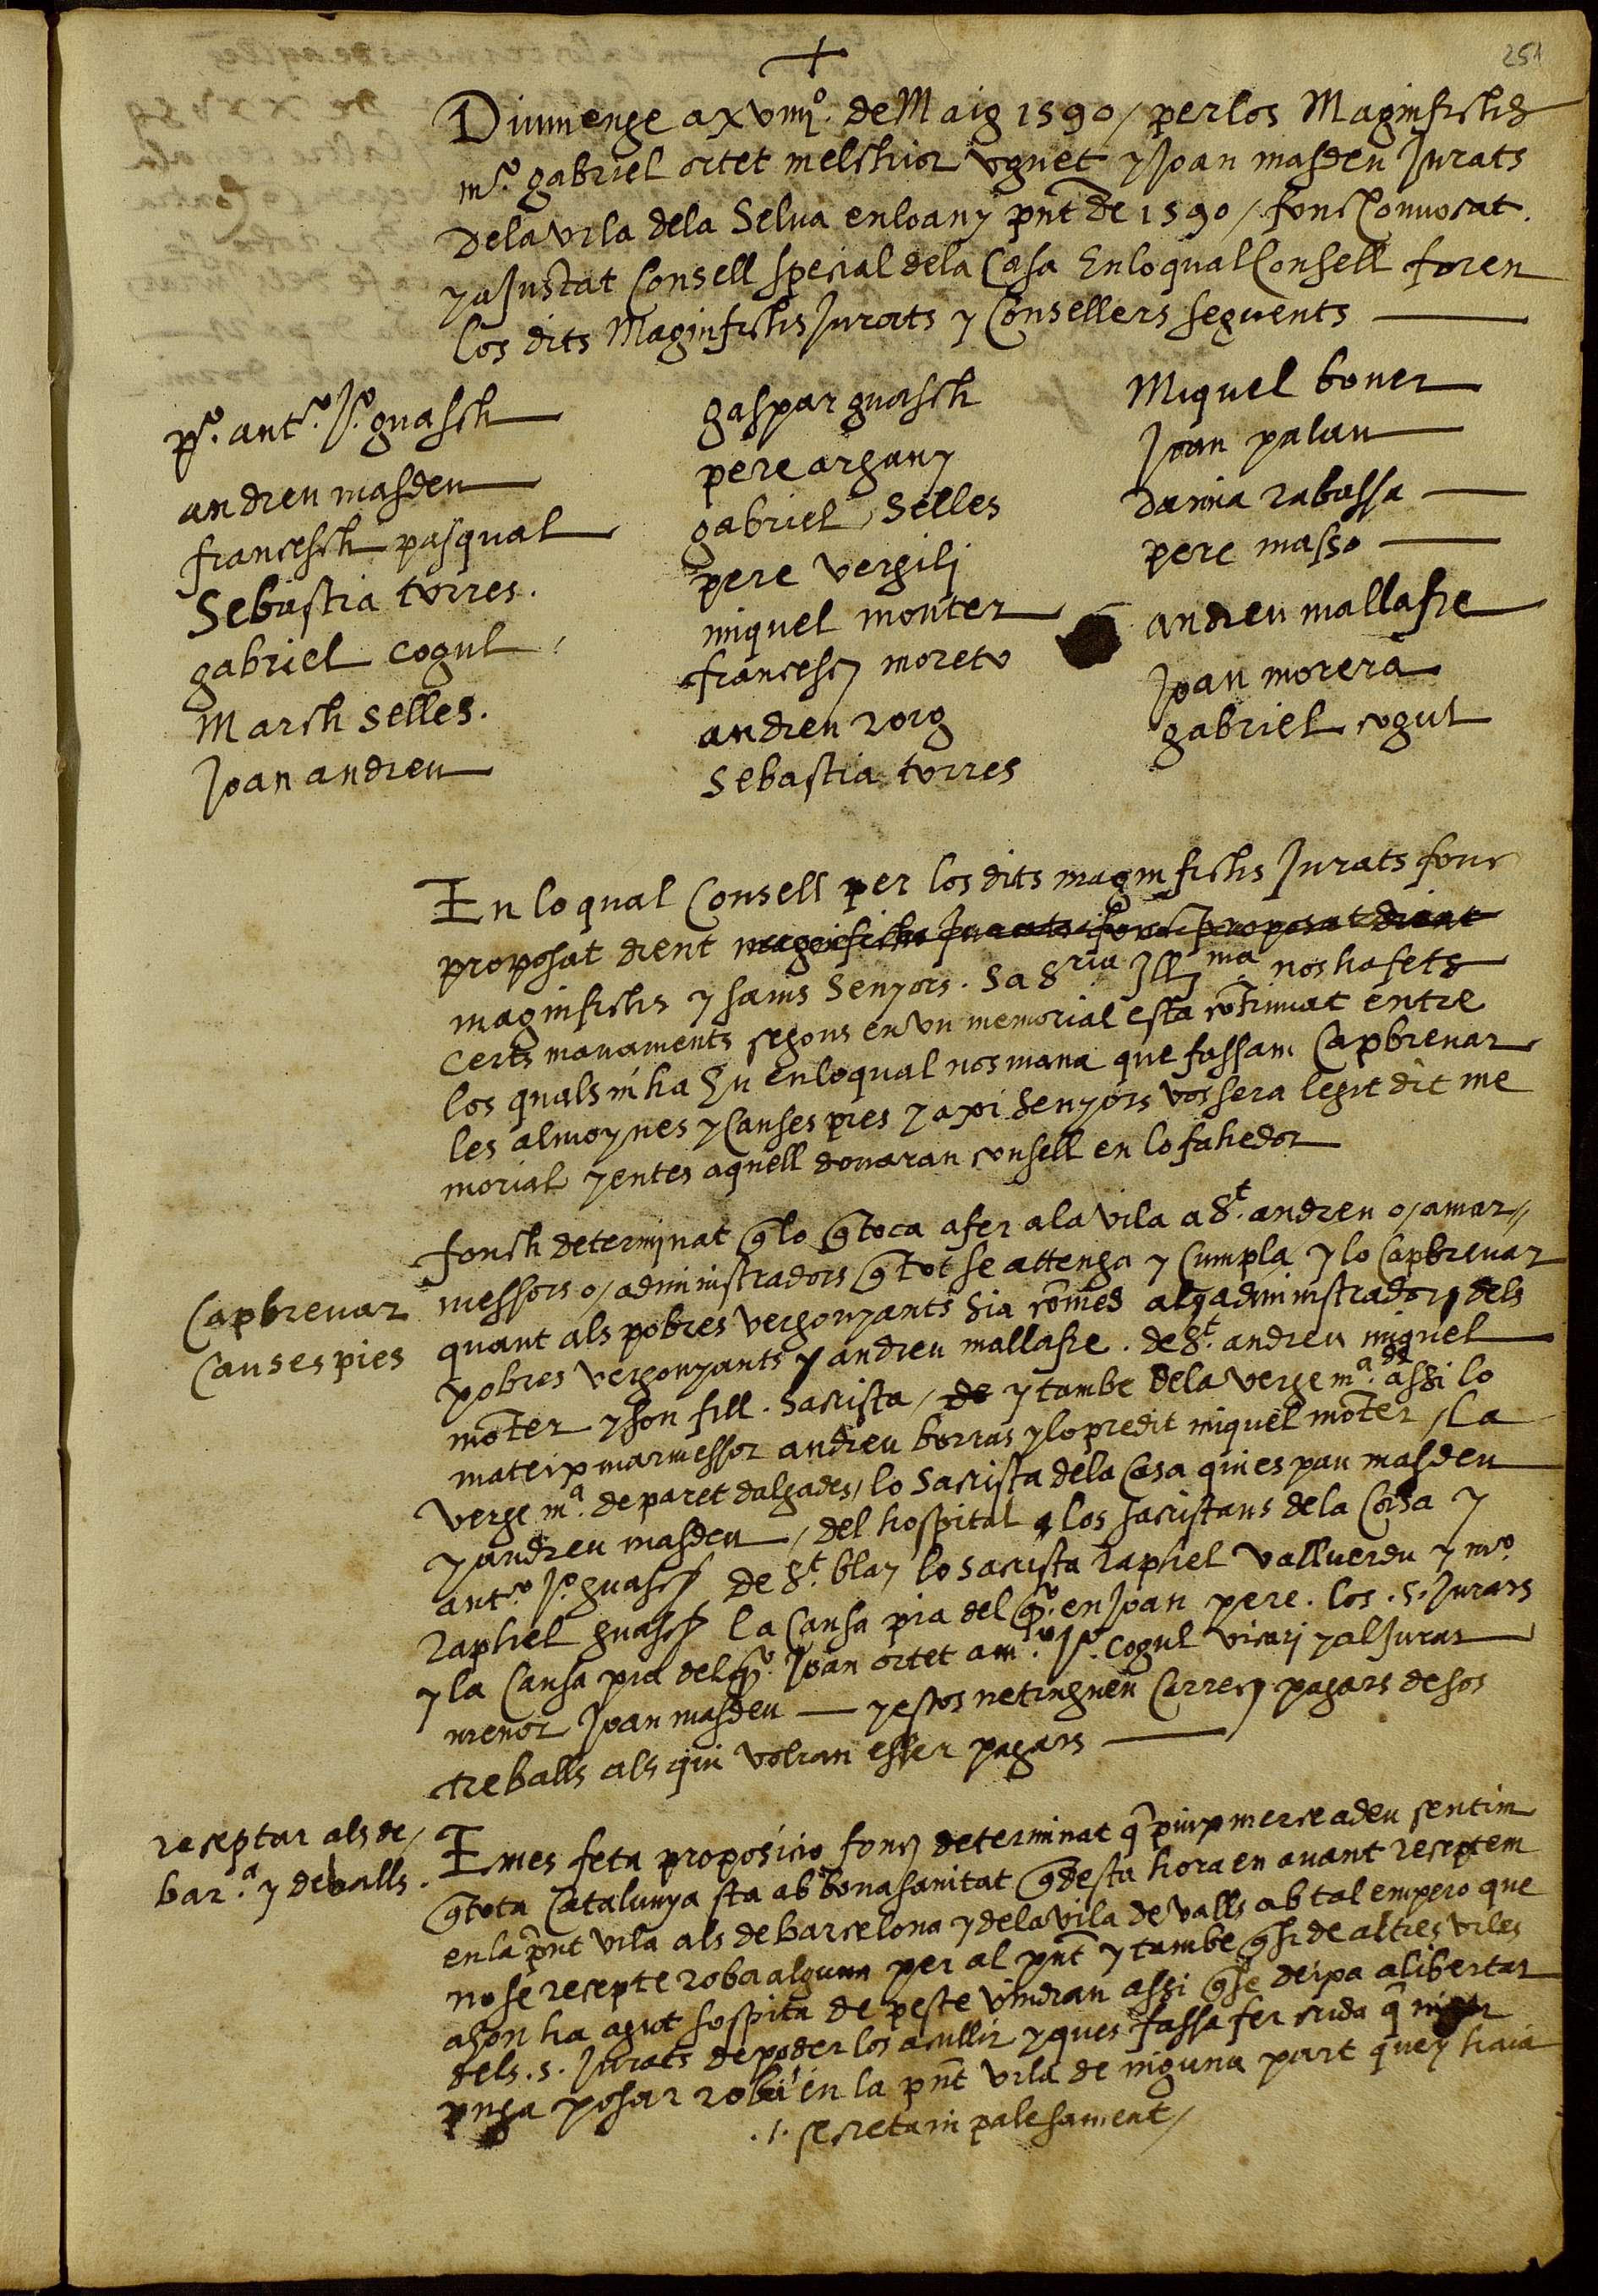 251
Diumenge a xviiijº. de Maig 1590 / per los Maginfichs
mº. gabriel ortet melchior ugnet y Joan masdeu Jurats
dela vila dela Selva en lo any pnt de 1590 / fonc Convocat.
y aJustat Consell special dela Casa En lo qual Consell foren
los dits Maginfichs Jurats y Consellers seguents
pº. antº. Jº. guasch
andreu masdeu
francesch pasqual
Sebastia torres.
gabriel cogul
March selles.
Joan andreu
gaspar guasch
pere argany
gabriel Selles
pere vergilj
miquel monter
francesch moreto
andreu roig
Sebastia torres
Miquel boner
Joan palau
damia rabassa
pere masso
andreu mallafre
Joan morera
gabriel cogul
En lo qual Consell per los dits maginfichs Jurats fonc
proposat dient maginfichs Jurats fonc proposat dient
maginfichs y savis Senyors. Sa Sria Illma nos ha fets
certs manaments segons en un memorial esta cotinuat entre
los quals ni ha hu en loqual nos mana que fassam Capbrevar
les almoynes y Causes pies y axi Senyors vos sera legit dit me
morial y entes aquell donaran consell en lo fahedor
Capbrevar
Causes pies
fonch determjnat q lo q toca a fer a la vila a St. andreu o / a mar
messors o / administradors q tot se attenga y Cumpla y lo Capbrevar
quant als pobres vergonyants sia comes als administradors dels
pobres vergonyants y andreu mallafre. de St. andreu miquel
moter y son fill. Sacrista / de y tambe dela verge mª. de assi lo
mateix marmessor andreu borras y lo predit miquel moter / La
verge mª. de paret dalgades / lo Sacrista dela Casa qui es pau masdeu
y andreu masdeu / del hospital los sacristans de la Casa y
antº. Jº. guasch de St. blay lo sacrista Raphel vallverdu y mº.
Raphel guasch la Causa pia del qº. en Joan pere. los. S. Jurats
y la Causa pia del qº. Joan ortet a mº. Jº. Cogul vicari y al Jurat
menor Joan masdeu — y estos ne tinguen Carrech pagats de sos
treballs als qui volran esser pagats
receptar als de
barª. y de valls.
E mes feta proposicio fonch determinat q puix merce a deu sentim
q tota Catalunya sta ab bona sanitat q desta hora en avant receptem
en la pnt vila als de barcelona y dela vila de valls ab tal empero que
no se recepte roba alguna per al pnt y tambe q si de altres viles
ahon ha agut sospita de peste vindran assi q se deixa a libertat
dels. s. Jurats de poder los acullir y ques fassa fer crida q nigu
puga posar roba en la pnt vila de niguna part quey haia
./. secreta ni palesament /